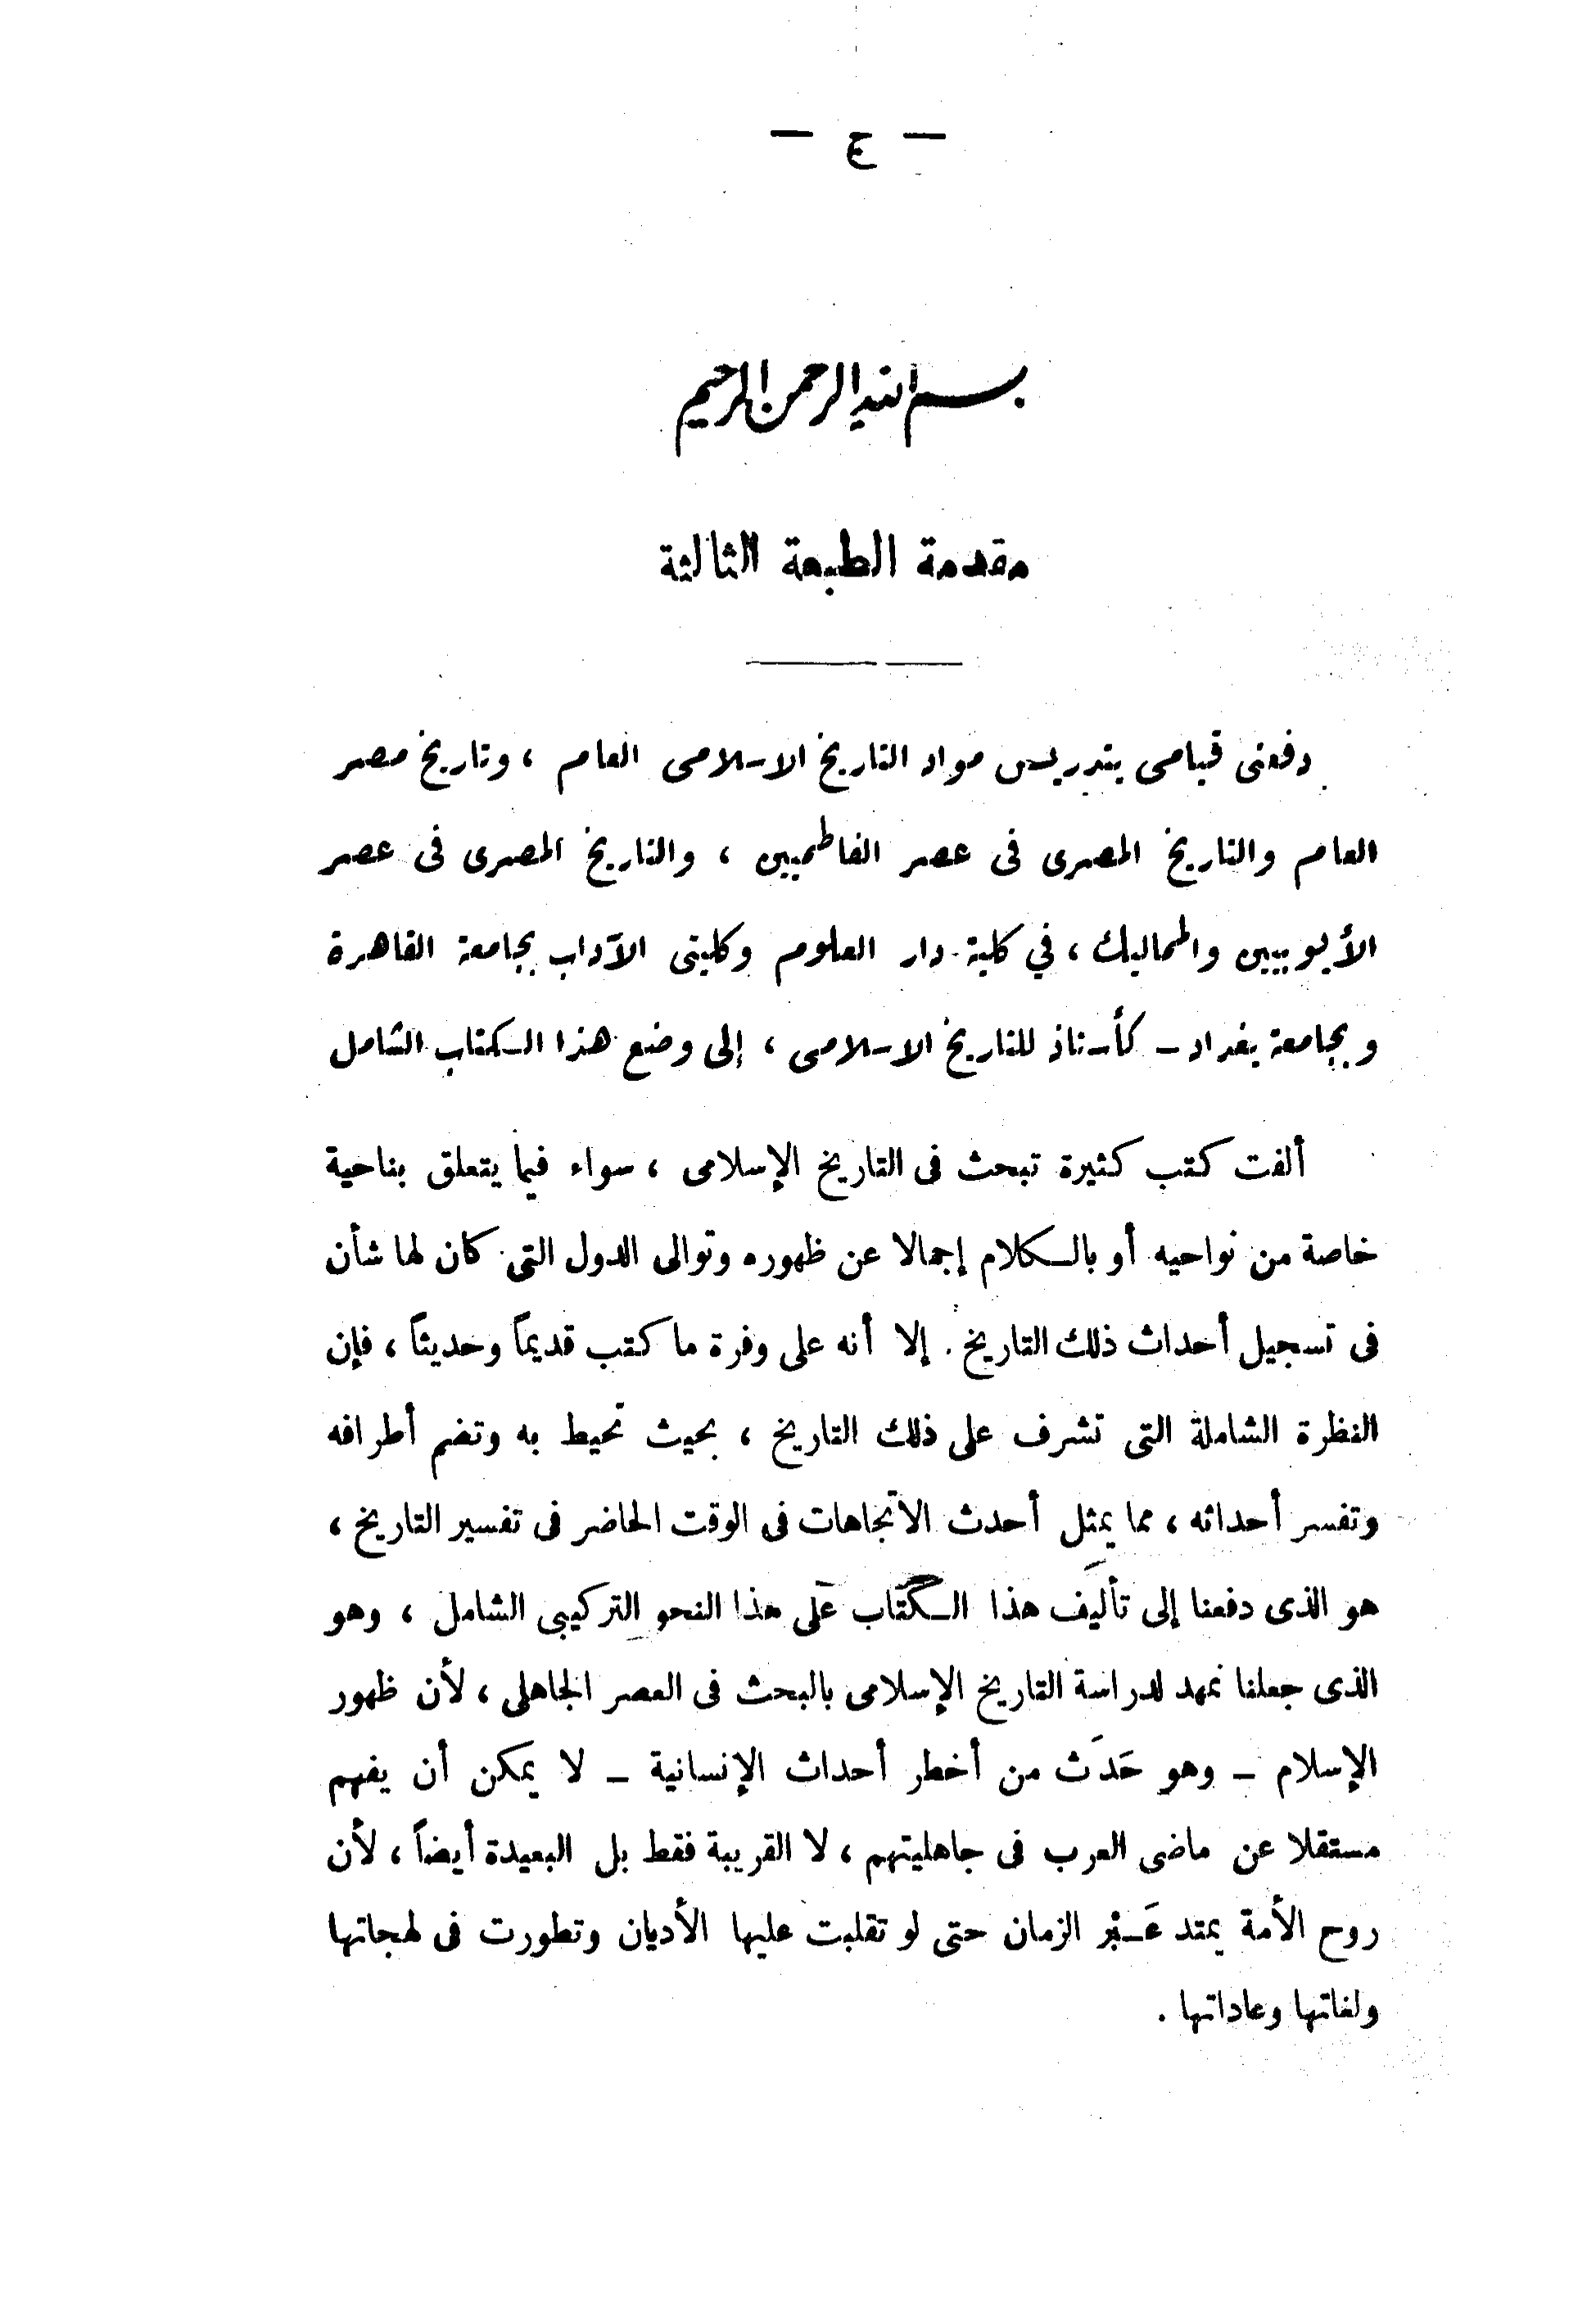 — ج —
بسم الله الرحمن الرحيم
مقدمة الطبعة الثالثة
دفعنى قيامى بتدريس مواد التاريخ الاسلامى العام ، وتاريخ مصر
العام والتاريخ المصرى فى عصر الفاطميين ، والتاريخ المصرى فى عصر
الأيوبيين والمماليك ، في كلية دار العلوم وكليتى الآداب بجامعة القاهرة
وبجامعة بغداد – كأستاذ للتاريخ الاسلامى ، إلى وضع هذا الكتاب الشامل
ألفت كتب كثيرة تبحث فى التاريخ الإسلامى ، سواء فيما يتعلق بناحية
خاصة من نواحيه أو بالكلام إجمالا عن ظهوره وتوالى الدول التى كان لها شأن
فى تسجيل أحداث ذلك التاريخ . إلا أنه على وفرة ما كتب قديماً وحديثاً ، فإن
النظرة الشاملة التى تشرف على ذلك التاريخ ، بحيث تحيط به وتضم أطرافه
وتفسر أحداثه ، مما يمثل أحدث الاتجاهات فى الوقت الحاضر فى تفسير التاريخ ،
هو الذى دفعنا إلى تأليف هذا الكتاب على هذا النحو التركيبى الشامل ، وهو
الذى جعلنا نمهد لدراسة التاريخ الإسلامى بالبحث فى العصر الجاهلى ، لأن ظهور
الإسلام – وهو حَدَث من أخطر أحداث الإنسانية – لا يمكن أن يفهم
مستقلا عن ماضى العرب فى جاهليتهم ، لا القريبة فقط بل البعيدة أيضاً ، لأن
روح الأمة يمتد عَبْر الزمان حتى لو تقلبت عليها الأديان وتطورت فى لهجاتها
ولغاتها وعاداتها .